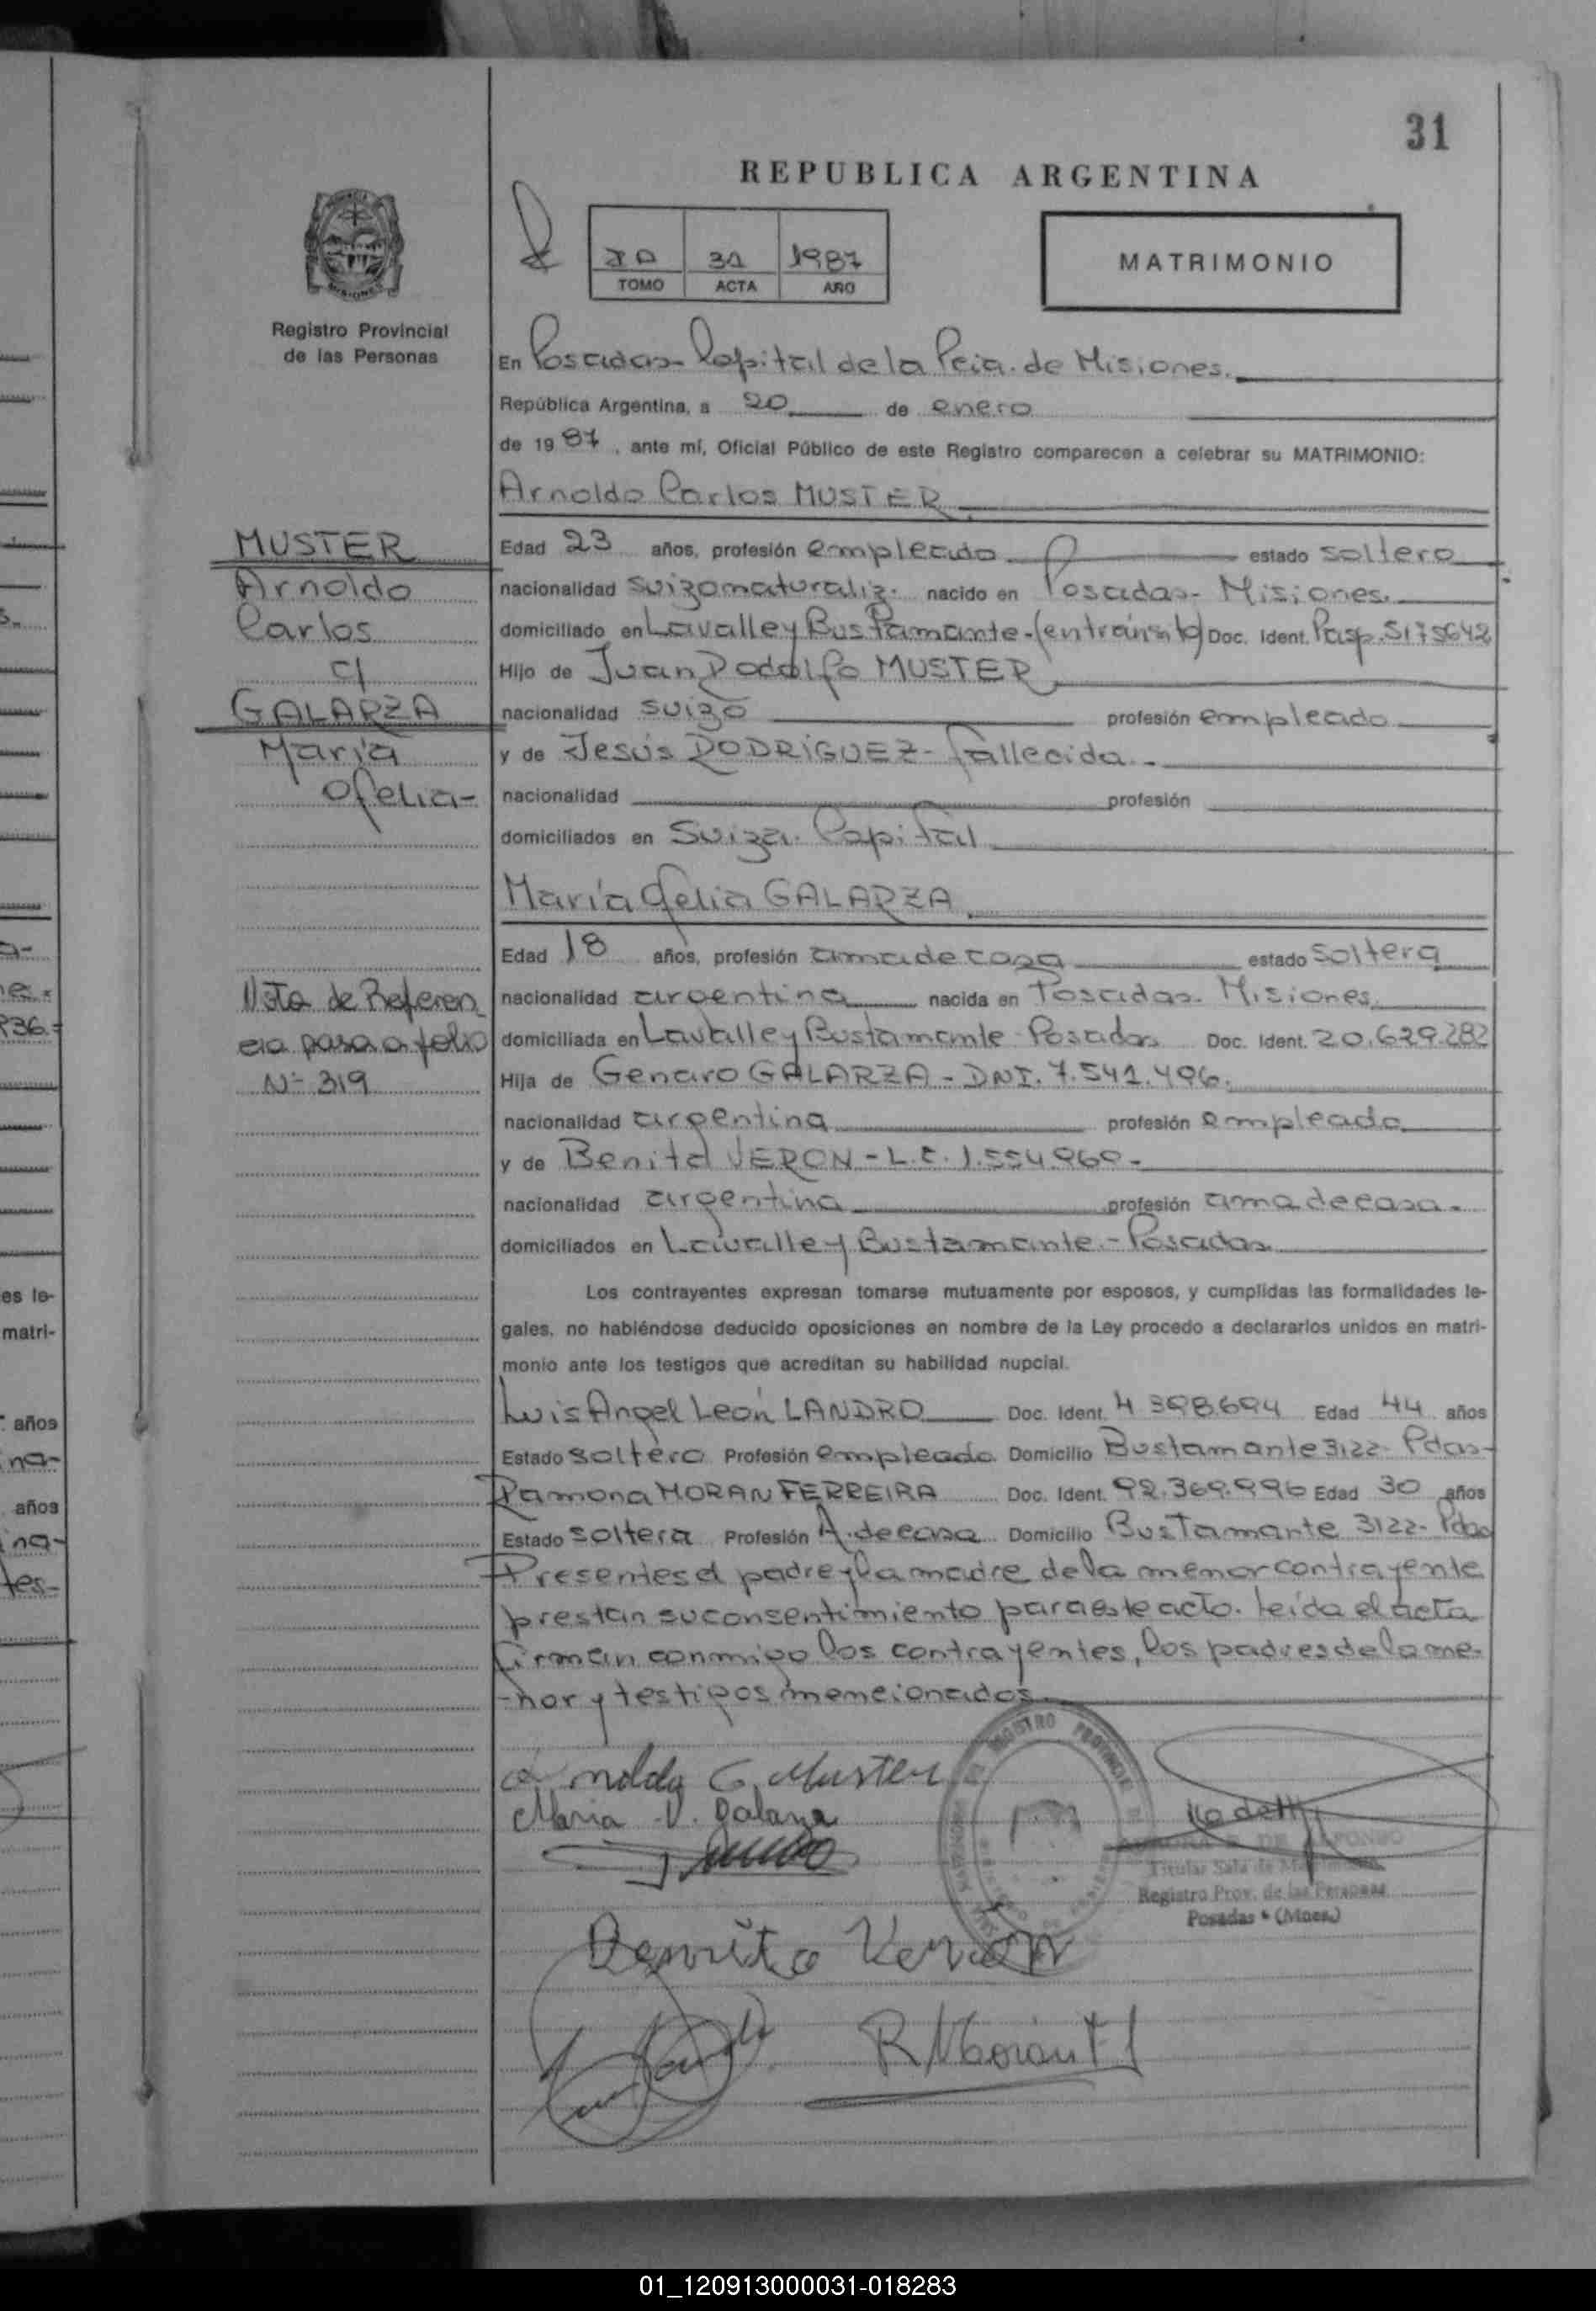 31
REPUBLICA ARGENTINA
31 1987
TOMO ACTA AÑO
MATRIMONIO
MISIONES
Registro Provincial
de las Personas
En Posadas- Capital de la Pcia. de Misiones.
República Argentina, a 20 de enero
de 19 87, ante mí, Oficial Público de este Registro comparecen a celebrar su MATRIMONIO:
Arnoldo Carlos MUSTER
MUSTER
Arnoldo
Carlos
c/
GALARZA
María
Ofelia-
Edad 23 años, profesión empleado estado soltero
nacionalidad suizo naturaliz. nacido en Posadas- Misiones.
domiciliado en Lavalle y Bustamante-(en tránsito) Doc. Ident. Pasp. 5175642
Hijo de Juan Rodolfo MUSTER
nacionalidad suizo profesión empleado
y de Jesús RODRIGUEZ- fallecida.-
nacionalidad profesión
domiciliados en Suiza- Capital
María Ofelia GALARZA
Edad 18 años, profesión ama de casa estado soltera
nacionalidad argentina nacida en Posadas- Misiones.
domiciliada en Lavalle y Bustamante- Posadas Doc. Ident. 20.629.282
Hija de Genaro GALARZA- DNI. 7.541.496.
nacionalidad argentina profesión empleado
y de Benita VERON- L.C. 1.554.960-
nacionalidad argentina profesión ama de casa.
domiciliados en Lavalle y Bustamante.- Posadas
Nota de Referen
cia pasa a folio
Nº 319
Los contrayentes expresan tomarse mutuamente por esposos, y cumplidas las formalidades le-
gales, no habiéndose deducido oposiciones en nombre de la Ley procedo a declararlos unidos en matri-
monio ante los testigos que acreditan su habilidad nupcial.
Luis Angel León LANDRO Doc. Ident. 4 398.694 Edad 44 años
Estado soltero Profesión empleado Domicilio Bustamante 3122- Pdas-
Ramona MORAN FERREIRA Doc. Ident. 92.369.996 Edad 30 años
Estado soltera Profesión A. de casa Domicilio Bustamante 3122- Pdas
Presentes el padre y la madre de la menor contrayente
prestan su consentimiento para este acto. leída el acta
firman conmigo los contrayentes, los padres de la me-
-nor y testigos mencionados
Arnoldo C. Muster
Maria O. Galarza
REGISTRO PROVINCIAL
DE ALFONSO
Titular Sala de Matrimonio
Registro Prov. de las Personas
Posadas - (Mnes.)
Benita Veron
R Moran F
es le-
matri-
años
na-
años
na-
01_120913000031-018283